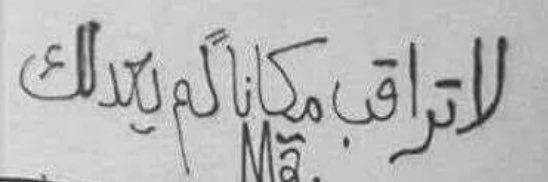 لا تراقب مكاناً لم يعد لك
Mã.